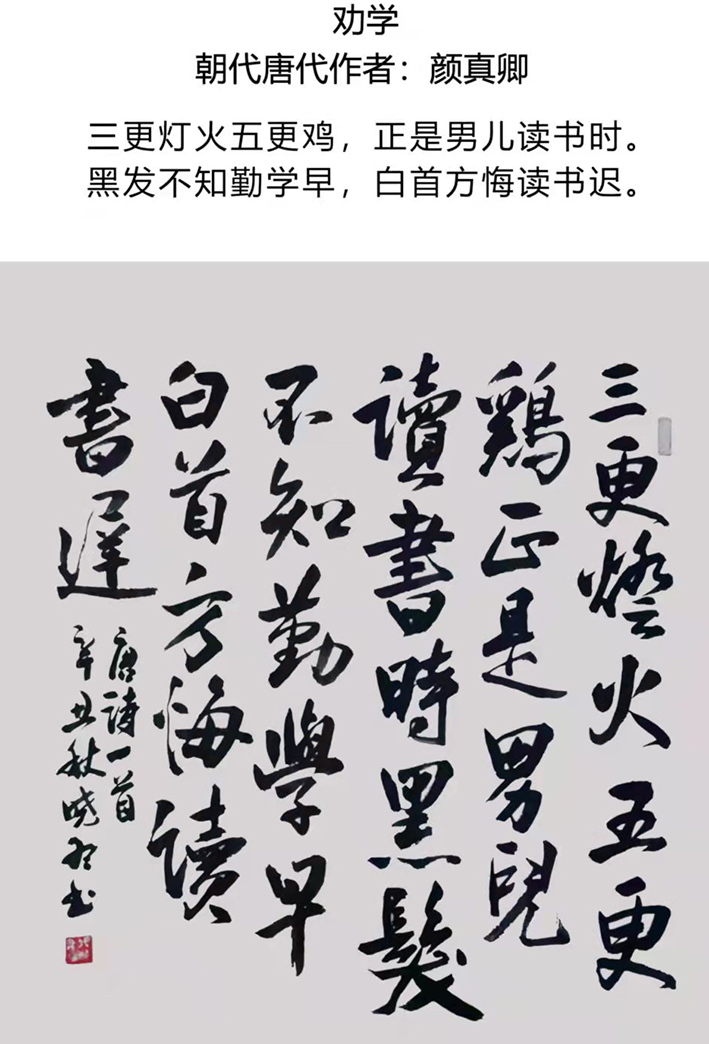 劝学
朝代唐代作者：颜真卿
三更灯火五更鸡，正是男儿读书时。
黑发不知勤学早，白首方悔读书迟。
三更燈火五更
鷄正是男兒
讀書時黑髮
不知勤學早
白首方悔讀
書遲
唐詩一首
辛丑秋曉
书